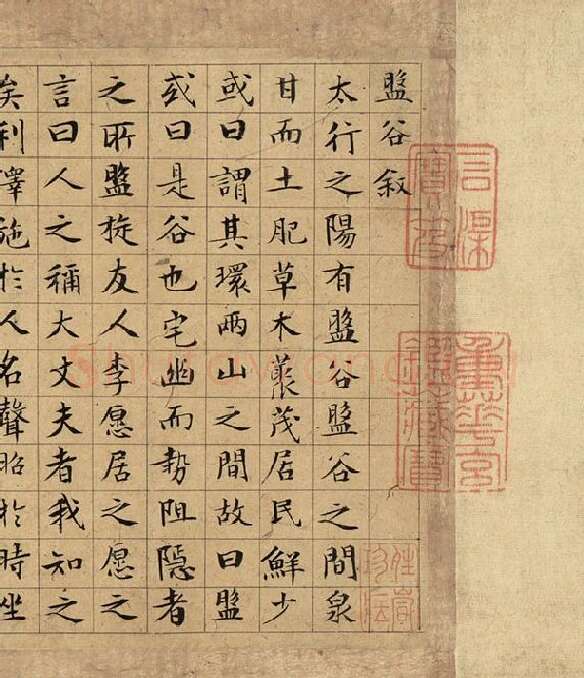 盤谷敘
太行之陽有盤谷盤谷之間泉
甘而土肥草木藂茂居民鮮少
或曰謂其環兩山之間故曰盤
或曰是谷也宅幽而勢阻隱者
之所盤旋友人李愿居之愿之
言曰人之稱大丈夫者我知之
矣利澤施於人名聲昭於時坐
重華宮鑑藏寶